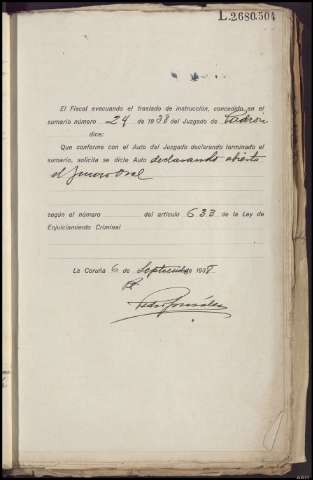 L.2680.504
El Fiscal evacuando el traslado de instrucción, concedido en el
sumario número 24 de 1938 del Juzgado de Padrón
dice:
Que conforme con el Auto del Juzgado declarando terminado el
sumario, solicita se dicte Auto declarando abierto
el Juicio Oral
según el número del artículo 633 de la Ley de
Enjuiciamiento Criminal
La Coruña 6 de Septiembre 1938.
Pedro González